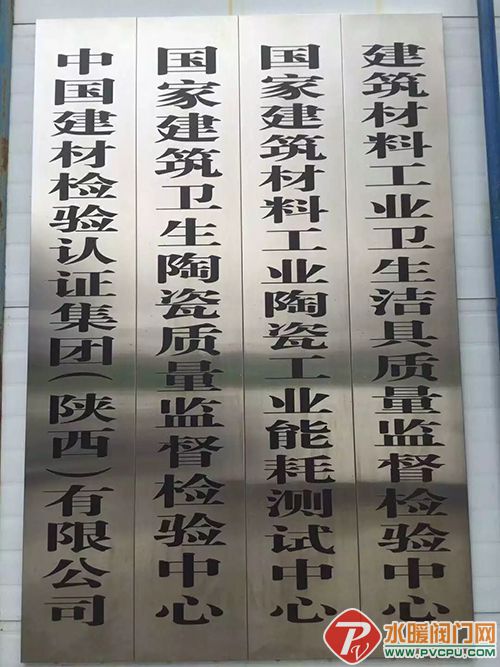 中国建材检验认证集团（陕西）有限公司
国家建筑卫生陶瓷质量监督检验中心
国家建筑材料工业陶瓷工业能耗测试中心
建筑材料工业卫生洁具质量监督检验中心
PV
水暖阀门网
WWW.PVCPU.COM